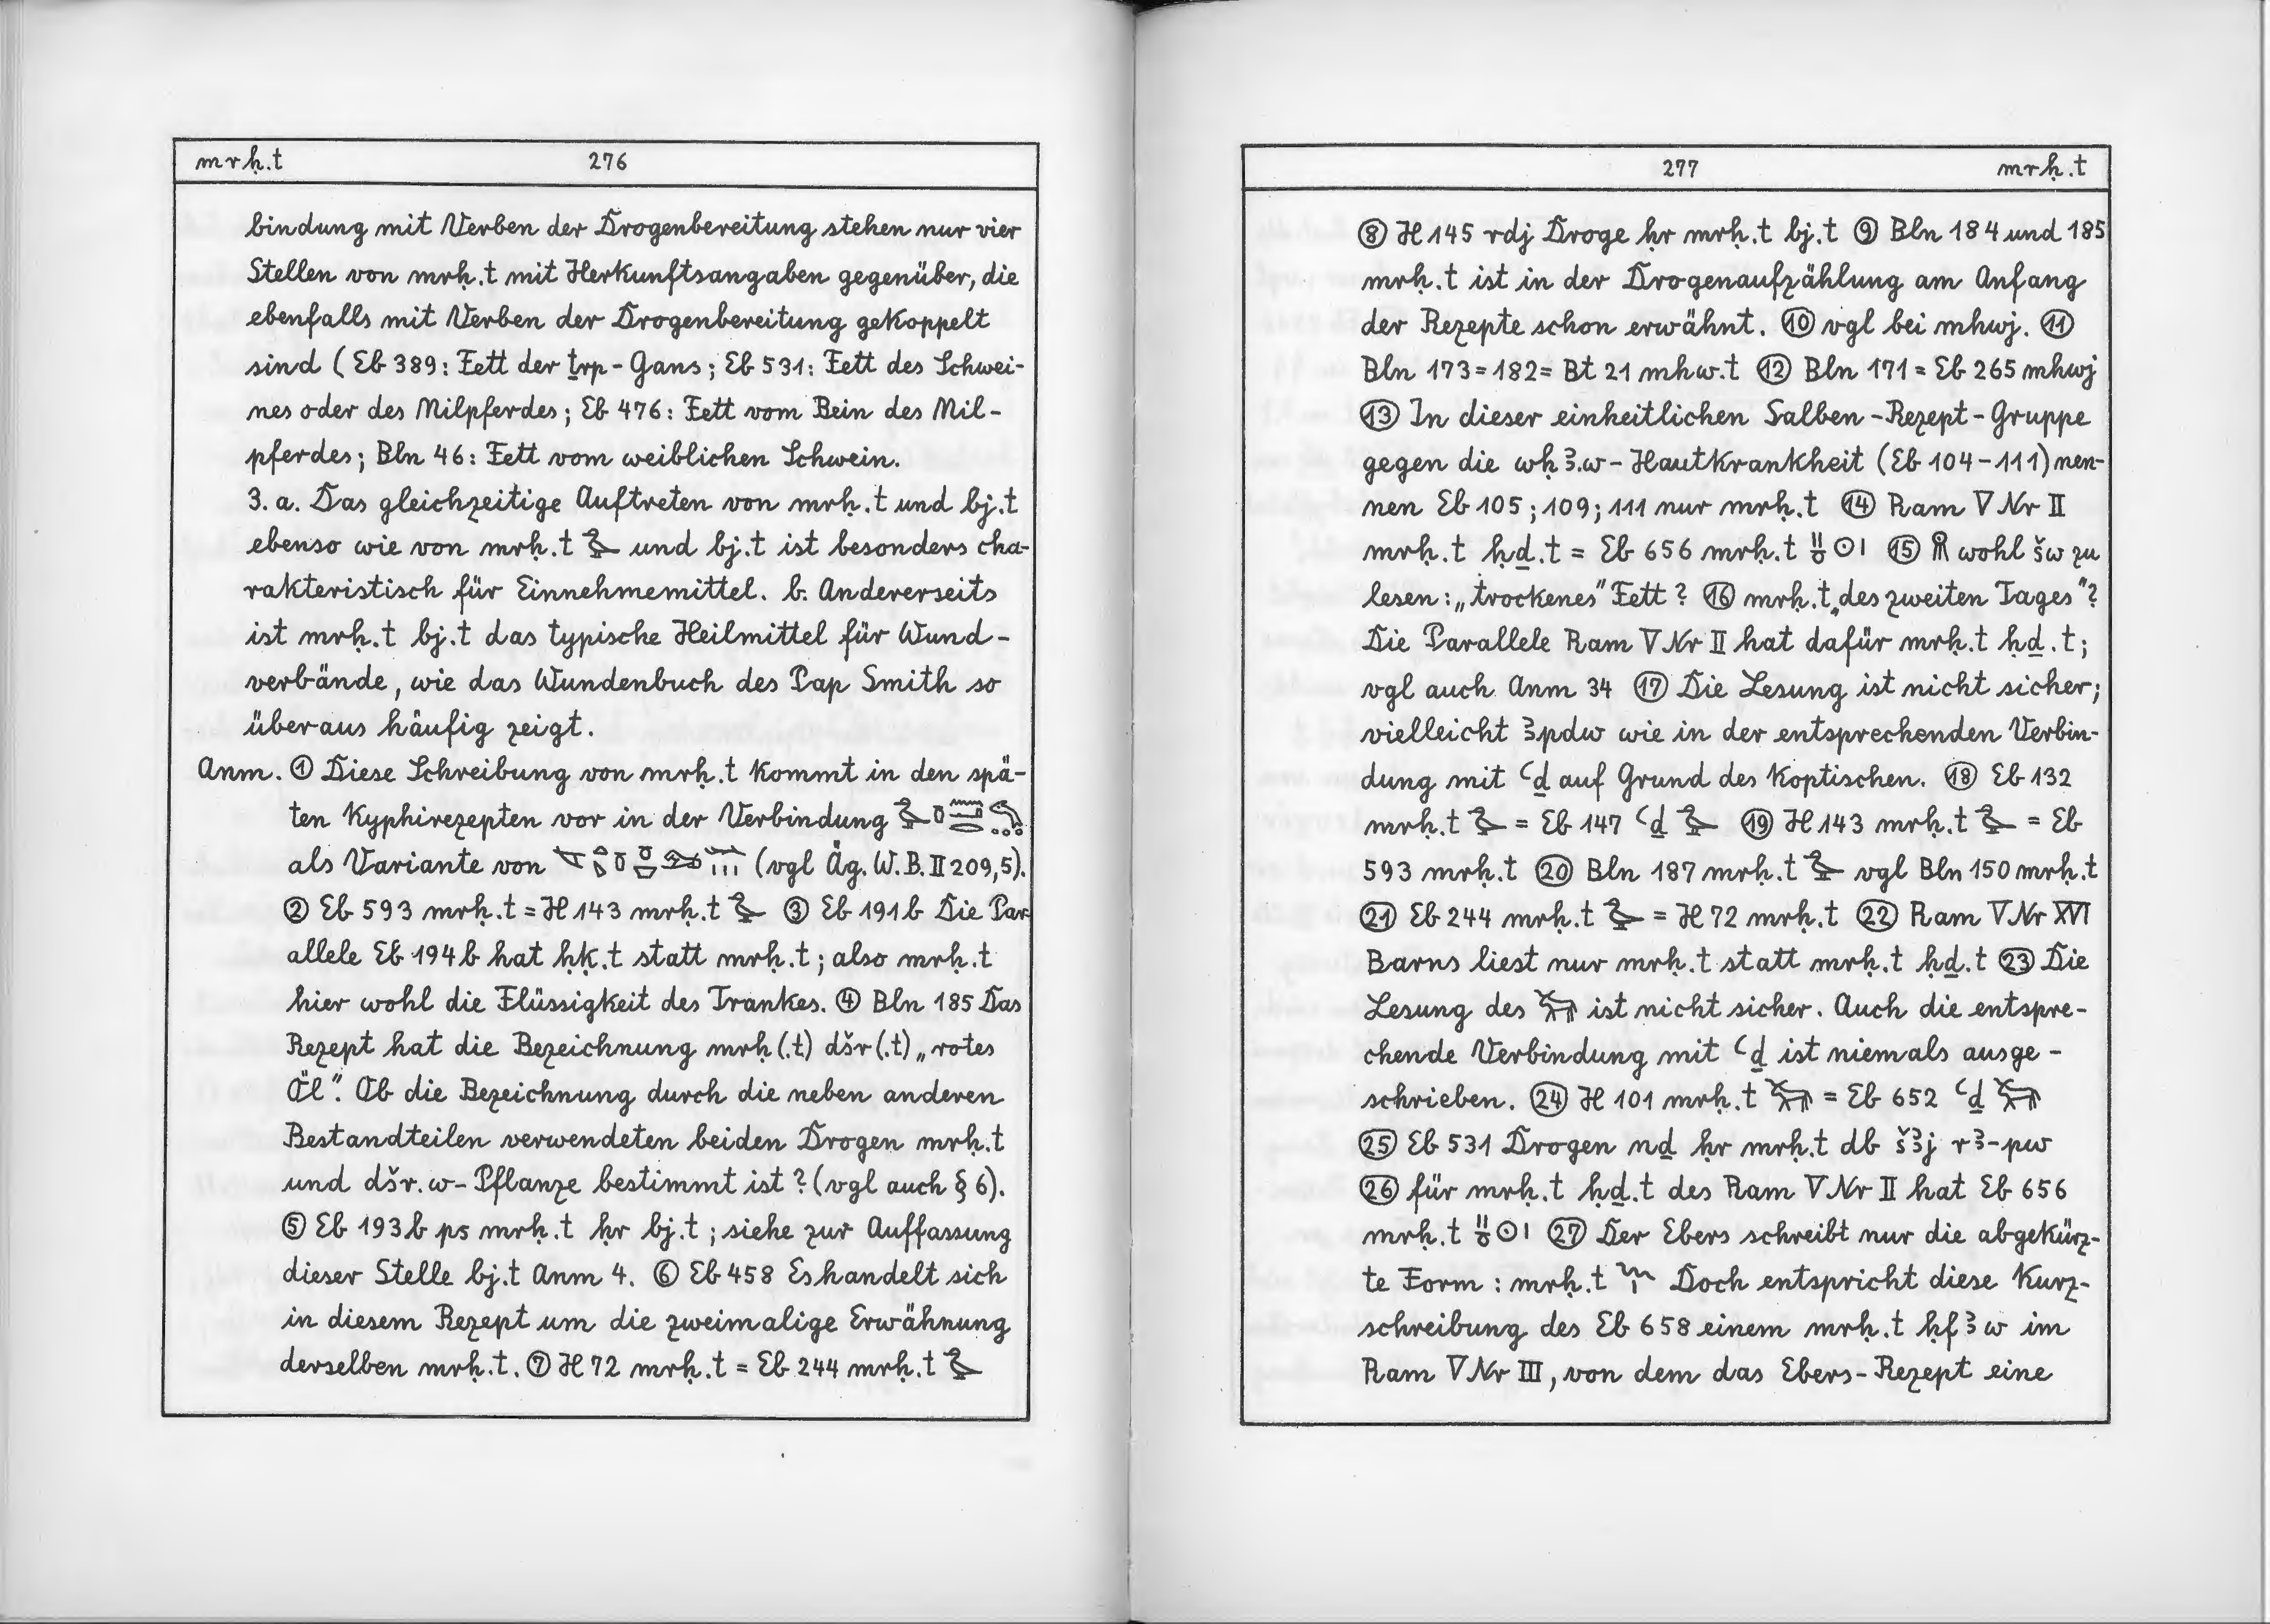 mrḥ.t 276
bindung mit Verben der Drogenbereitung stehen nur vier
Stellen von mrḥ.t mit Herkunftsangaben gegenüber, die
ebenfalls mit Verben der Drogenbereitung gekoppelt
sind (Eb 389: Fett der ṯrp-Gans; Eb 531: Fett des Schwei-
nes oder des Nilpferdes; Eb 476: Fett vom Bein des Nil-
pferdes; Bln 46: Fett vom weiblichen Schwein.
3. a. Das gleichzeitige Auftreten von mrḥ.t und bj.t
ebenso wie von mrḥ.t und bj.t ist besonders cha-
rakteristisch für Einnehmemittel. b. Andererseits
ist mrḥ.t bj.t das typische Heilmittel für Wund-
verbände, wie das Wundenbuch des Pap Smith so
überaus häufig zeigt.
Anm. ① Diese Schreibung von mrḥ.t kommt in den spä-
ten Kyphirezepten vor in der Verbindung
als Variante von (vgl Äg. W.B. II 209,5).
② Eb 593 mrḥ.t = H 143 mrḥ.t ③ Eb 191b Die Par
allele Eb 194b hat ḥḳ.t statt mrḥ.t; also mrḥ.t
hier wohl die Flüssigkeit des Trankes. ④ Bln 185 Das
Rezept hat die Bezeichnung mrḥ(.t) dšr(.t) „rotes
Öl". Ob die Bezeichnung durch die neben anderen
Bestandteilen verwendeten beiden Drogen mrḥ.t
und dšr.w-Pflanze bestimmt ist? (vgl auch § 6).
⑤ Eb 193b ps mrḥ.t ḥr bj.t; siehe zur Auffassung
dieser Stelle bj.t Anm 4. ⑥ Eb 458 Es handelt sich
in diesem Rezept um die zweimalige Erwähnung
derselben mrḥ.t. ⑦ H 72 mrḥ.t = Eb 244 mrḥ.t
277 mrḥ.t
⑧ H 145 rdj Droge ḥr mrḥ.t bj.t ⑨ Bln 184 und 185
mrḥ.t ist in der Drogenaufzählung am Anfang
der Rezepte schon erwähnt. ⑩ vgl bei mhwj. ⑪
Bln 173 = 182 = Bt 21 mhw.t ⑫ Bln 171 = Eb 265 mhwj
⑬ In dieser einheitlichen Salben-Rezept-Gruppe
gegen die wḥꜣ.w-Hautkrankheit (Eb 104-111) nen-
nen Eb 105; 109; 111 nur mrḥ.t ⑭ Ram V Nr II
mrḥ.t ḥḏ.t = Eb 656 mrḥ.t ⑮ wohl šw zu
lesen: „trockenes" Fett? ⑯ mrḥ.t „des zweiten Tages"?
Die Parallele Ram V Nr II hat dafür mrḥ.t ḥḏ.t;
vgl auch Anm 34 ⑰ Die Lesung ist nicht sicher;
vielleicht ꜣpdw wie in der entsprechenden Verbin-
dung mit ꜥḏ auf Grund des Koptischen. ⑱ Eb 132
mrḥ.t = Eb 147 ꜥḏ ⑲ H 143 mrḥ.t = Eb
593 mrḥ.t ⑳ Bln 187 mrḥ.t vgl Bln 150 mrḥ.t
㉑ Eb 244 mrḥ.t = H 72 mrḥ.t ㉒ Ram V Nr XVI
Barns liest nur mrḥ.t statt mrḥ.t ḥḏ.t ㉓ Die
Lesung des ist nicht sicher. Auch die entspre-
chende Verbindung mit ꜥḏ ist niemals ausge-
schrieben. ㉔ H 101 mrḥ.t = Eb 652 ꜥḏ
㉕ Eb 531 Drogen nḏ ḥr mrḥ.t db šꜣj rꜣ-pw
㉖ für mrḥ.t ḥḏ.t des Ram V Nr II hat Eb 656
mrḥ.t ㉗ Der Ebers schreibt nur die abgekürz-
te Form: mrḥ.t Doch entspricht diese Kurz-
schreibung des Eb 658 einem mrḥ.t ḥfꜣw im
Ram V Nr III, von dem das Ebers-Rezept eine